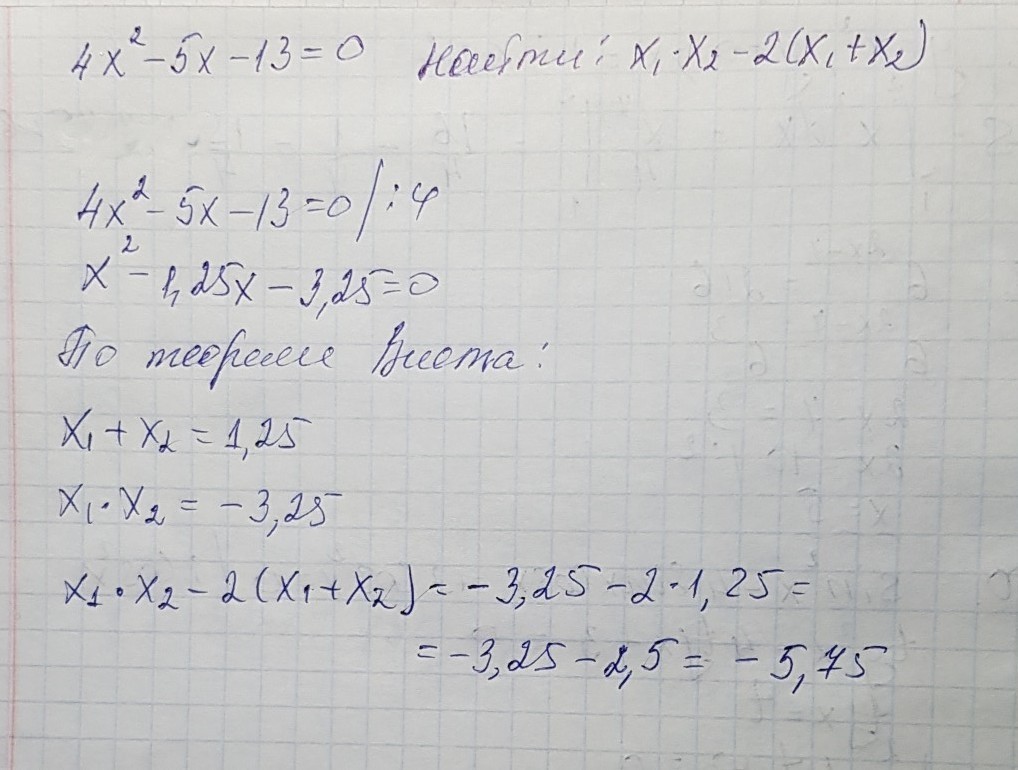 4x² - 5x - 13 = 0 Найти: x₁·x₂ - 2(x₁+x₂)
4x² - 5x - 13 = 0 /:4
x² - 1,25x - 3,25 = 0
По теореме Виета:
x₁ + x₂ = 1,25
x₁·x₂ = -3,25
x₁·x₂ - 2(x₁+x₂) = -3,25 - 2·1,25 =
= -3,25 - 2,5 = -5,75